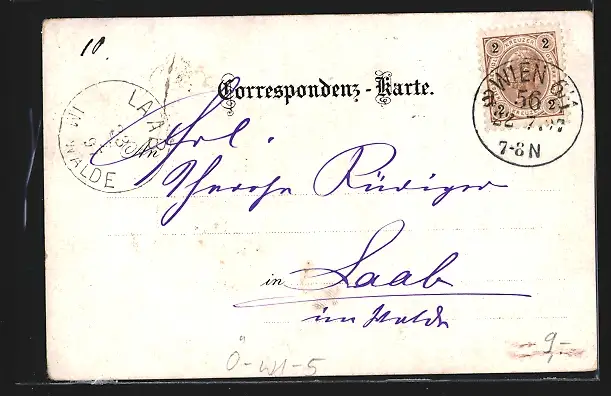 10.
2 KREUZER 2
WIEN
56
7-8 N
Correspondenz-Karte.
LAAB
IM
WALDE
Frl.
Therese Rüdiger
in Laab
im Walde
Ö-WI-5
-9,-